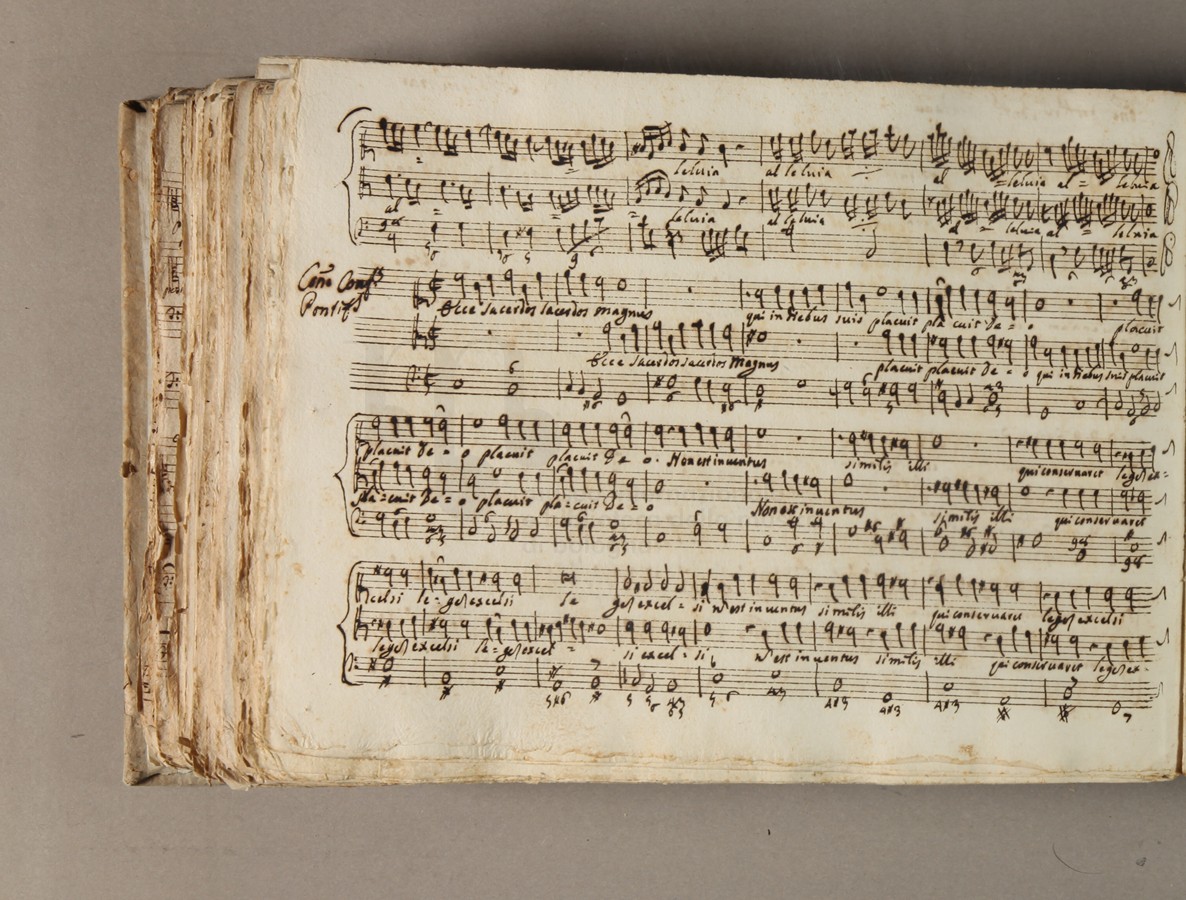 leluia al leluia al = leluia al = leluia
al = = leluia al leluia al = leluia al = leluia
Pontifs
Ecce sacerdos sacerdos magnus qui in diebus suis placuit pla cuit De = o placuit
Ecce sacerdos sacerdos Magnus placuit placuit De = o qui in diebus suis placuit
placuit De = o placuit placuit De o. Non est inventus similis illi qui conservaret legem ex=
pla=cuit De = o placuit pla=cuit De = o Non est inventus similis illi qui conservaret
celsi le=gem excelsi le gem excel = si n est inventus similis illi qui conservaret legem excelsi
legem excelsi le=gem excel = si excel = si n est inventus similis illi qui conservaret legem ex-